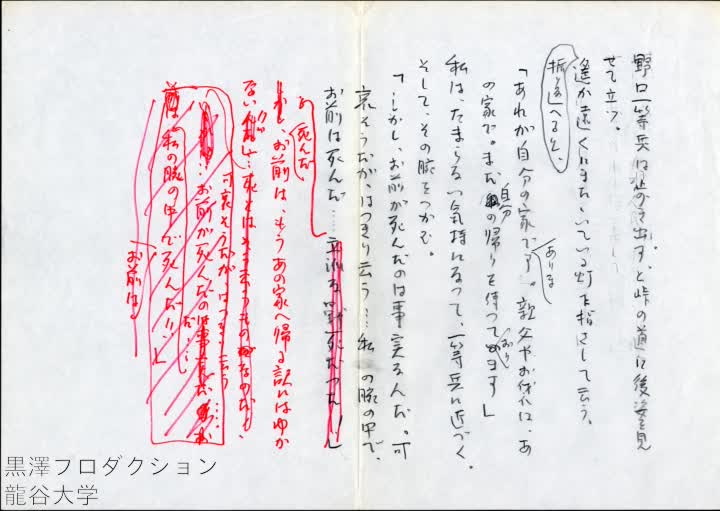 野口一等兵は歩き出すと峠の道に後姿を見
せて立つ。
遥か遠くにまたゝいている灯を指さして云う。
振り返へると、
「あれが自分の家です。親父やお袋は、あ
ありる
の家で。まだ自分の帰りを待つており
ます」
私は、たまらない気持になつて、一等兵に近づく。
そして、その腕をつかむ。
「しかし、お前が死んだのは事実なんだ。可
哀そうだが、はつきり云う…私の腕の中で、
お前は死んだ……
死んだ
お前は、もうあの家へ帰る訳にはゆか
ない
可哀そうだが はつきり云う……
お前が死んだのは事実だ
お前は
私の腕の中で死んだ！」
黒澤プロダクション
龍谷大学